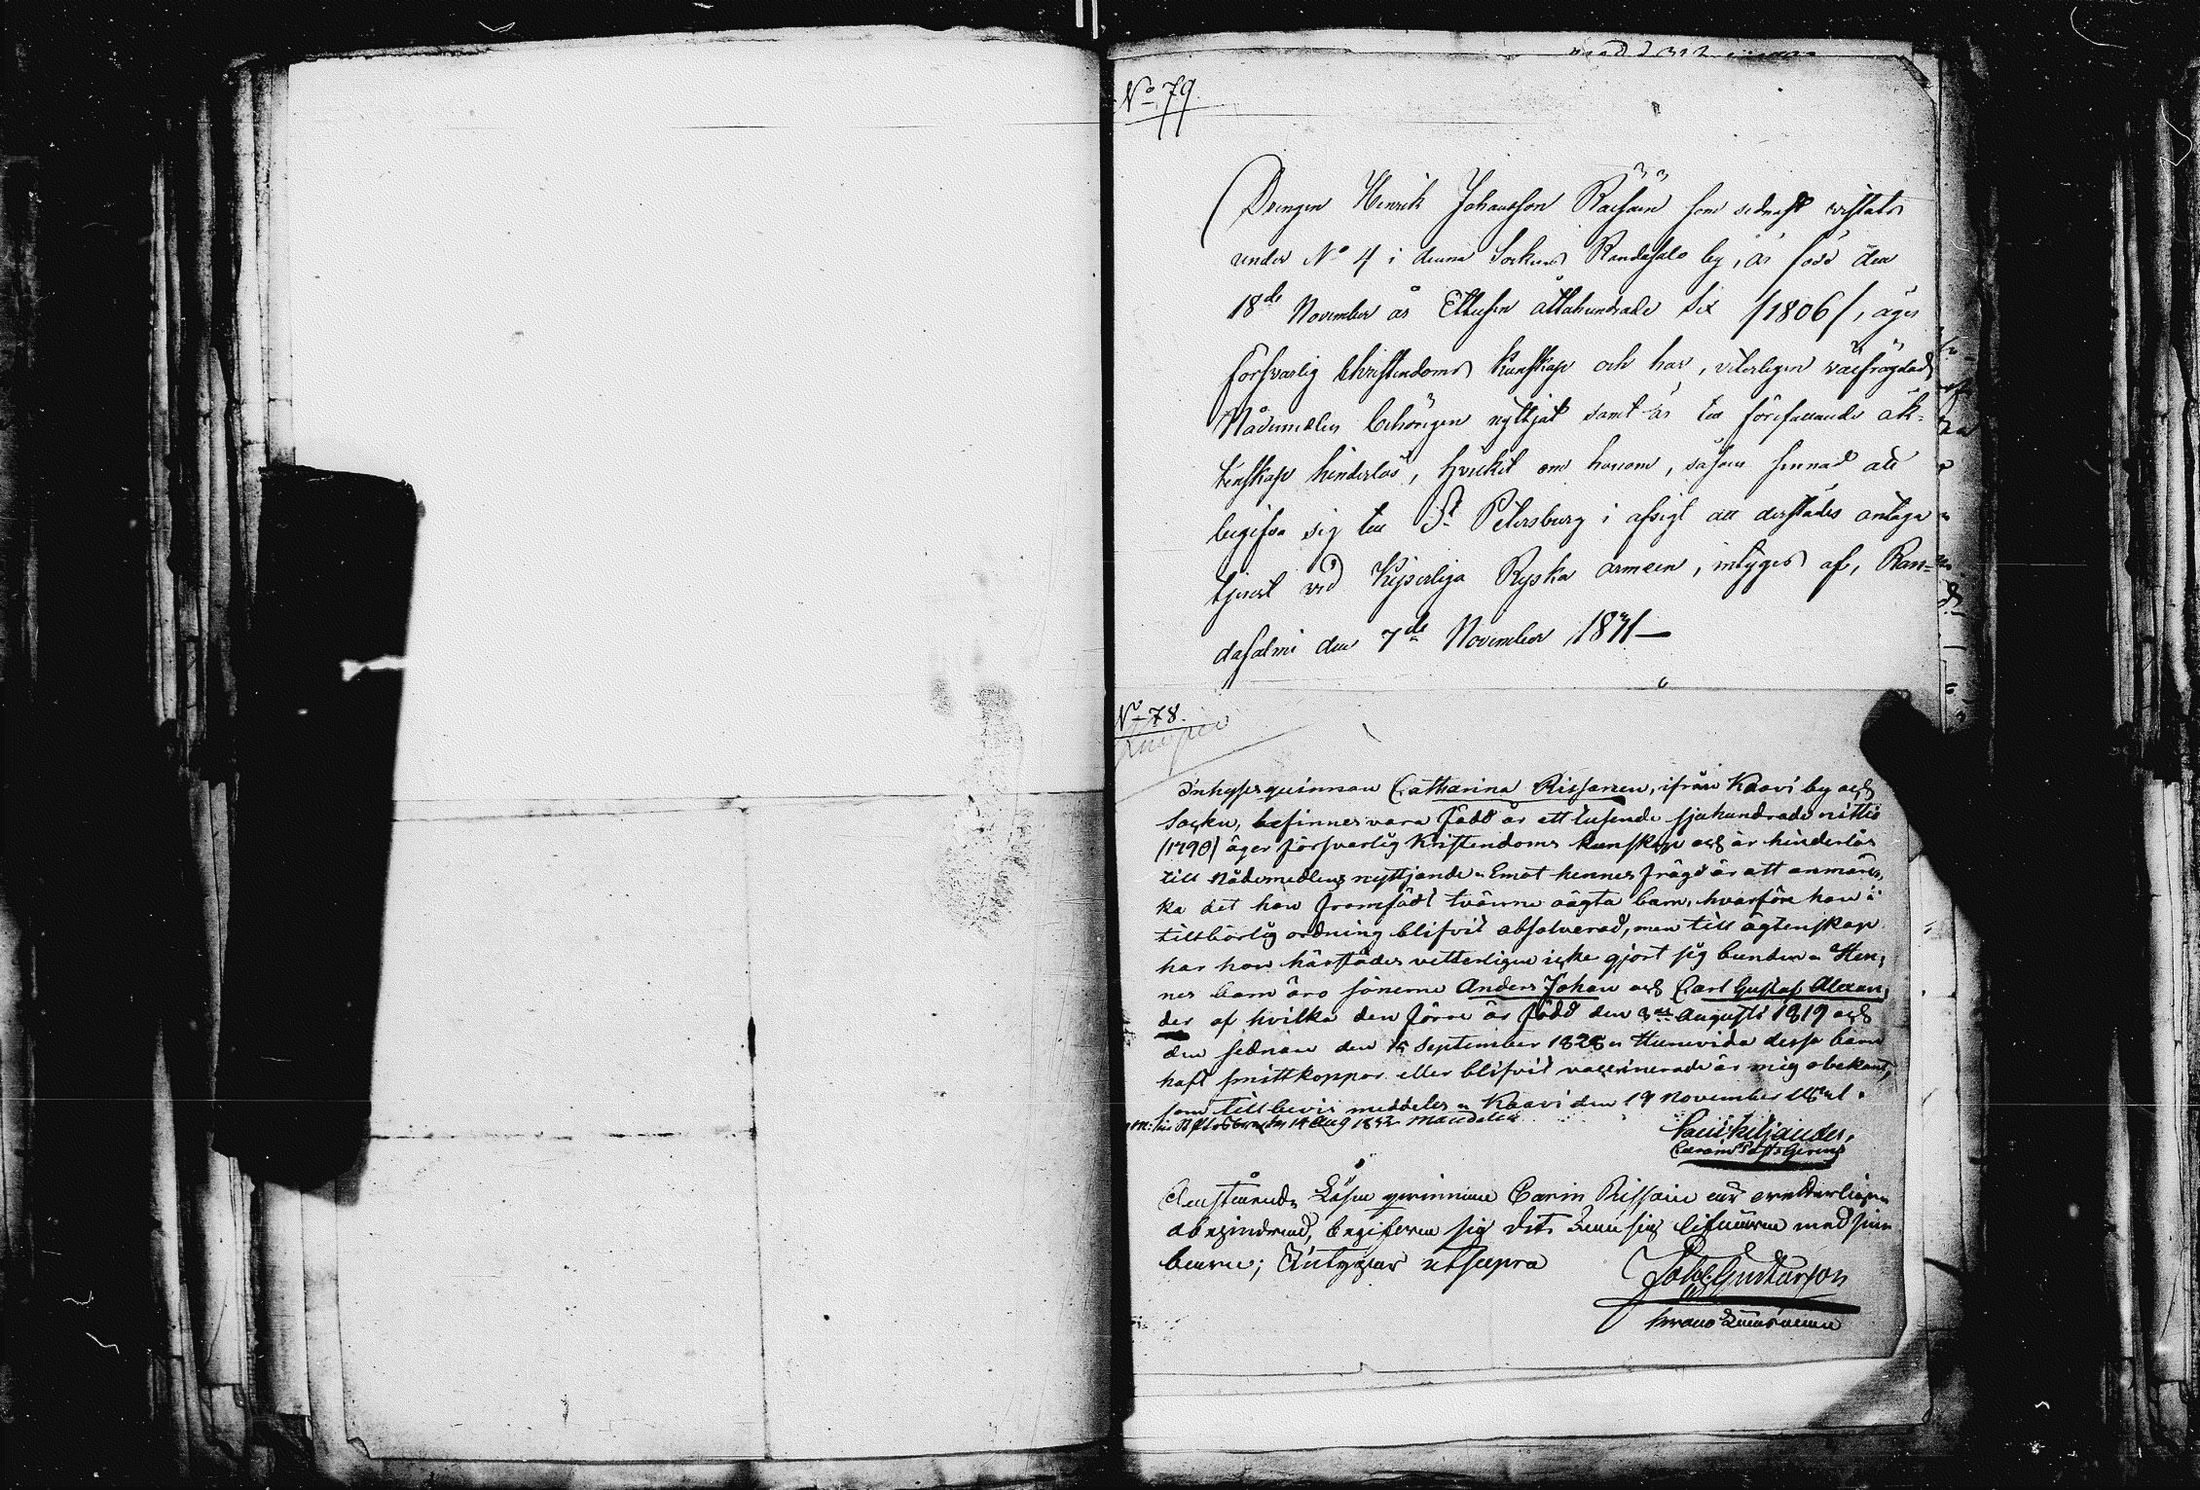 No 79
Drengen Henrik Johansson Räisäin som sednast vistats
under No 4 i denna Sockens Randasalo by, är född den
18de November år Ettusen åttahundrade Sex /1806/, äger
försvarlig Christendoms kunskap och har, viterligen välfrägdad,
Nådemedlen behörigen nyttjat samt är till förefallande äk-
tenskap hinderlös, hvilket om honom, såsom sinnad att
begifva sig till St Petersburg i afsigt att derstädes antaga
tjenst vid Kejserliga Ryska armeen, intygas af, Ran-
dasalmi den 7de November 1831
No 78.
Inhyses qvinnan Catharina Rissanen, ifrån Kaavi by och
Socken, befinnes vara född år ett tusende sjuhundrade nittio
/1790/ äger försvarlig Kristendoms kunskap och är hinderlös
till Nådemedlens nyttjande. Emot hennes frägd är att anmär-
ka det hon framfödt tvänne oägta barn, hvarföre hon i
tillbörlig ordning blifvit absolverad, men till ägtenskap
har hon härstädes vetterligen icke gjort sig bunden. Hen-
nes barn äro sönerne Anders Johan och Carl Gustaf Alexan-
der af hvilka den förre är född den 3 Augusti 1819 och
den sednare den 15 September 1828. Huruvida dessa barn
haft smittkoppor eller blifvit vaccinerade är mig obekant,
som till bevis meddelas. Kaavi den 19 November 1831.
14 Aug 1832
qvinnan Carin
begifva sig med sina
barn; Intygar ut supra
Joh Gustavson